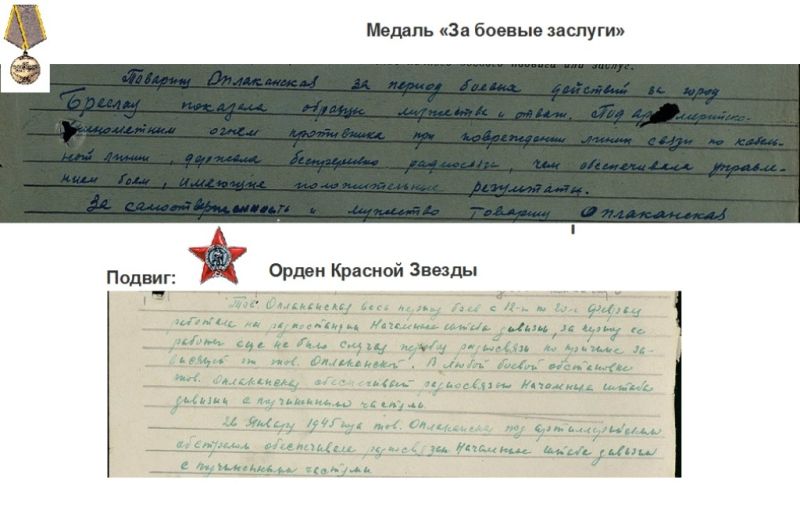 Медаль «За боевые заслуги»
Товарищ Оплаканская за период боевых действий за город
Бреслау показала образцы мужества и отваги. Под
огнем противника при повреждении линии связи по кабель-
ной линии, держала беспрерывно радиосвязь, чем обеспечивала управле-
нием боем, имеющие положительные результаты.
За самоотверженность и мужество Товарищ Оплаканская
Подвиг:
Орден Красной Звезды
Тов. Оплаканская весь период боев с 12-го по 20-е февраля
работала на радиостанции Начальника штаба дивизии, за период ее
работы еще не было случая радиосвязь по причине за-
висящей от тов. Оплаканской. В любой боевой обстановке
тов. Оплаканская обеспечивает радиосвязью Начальника штаба
дивизии с частями.
26 Января 1945 года тов. Оплаканская под артиллерийским
обстрелом обеспечивала радиосвязью Начальника штаба дивизии
с частями